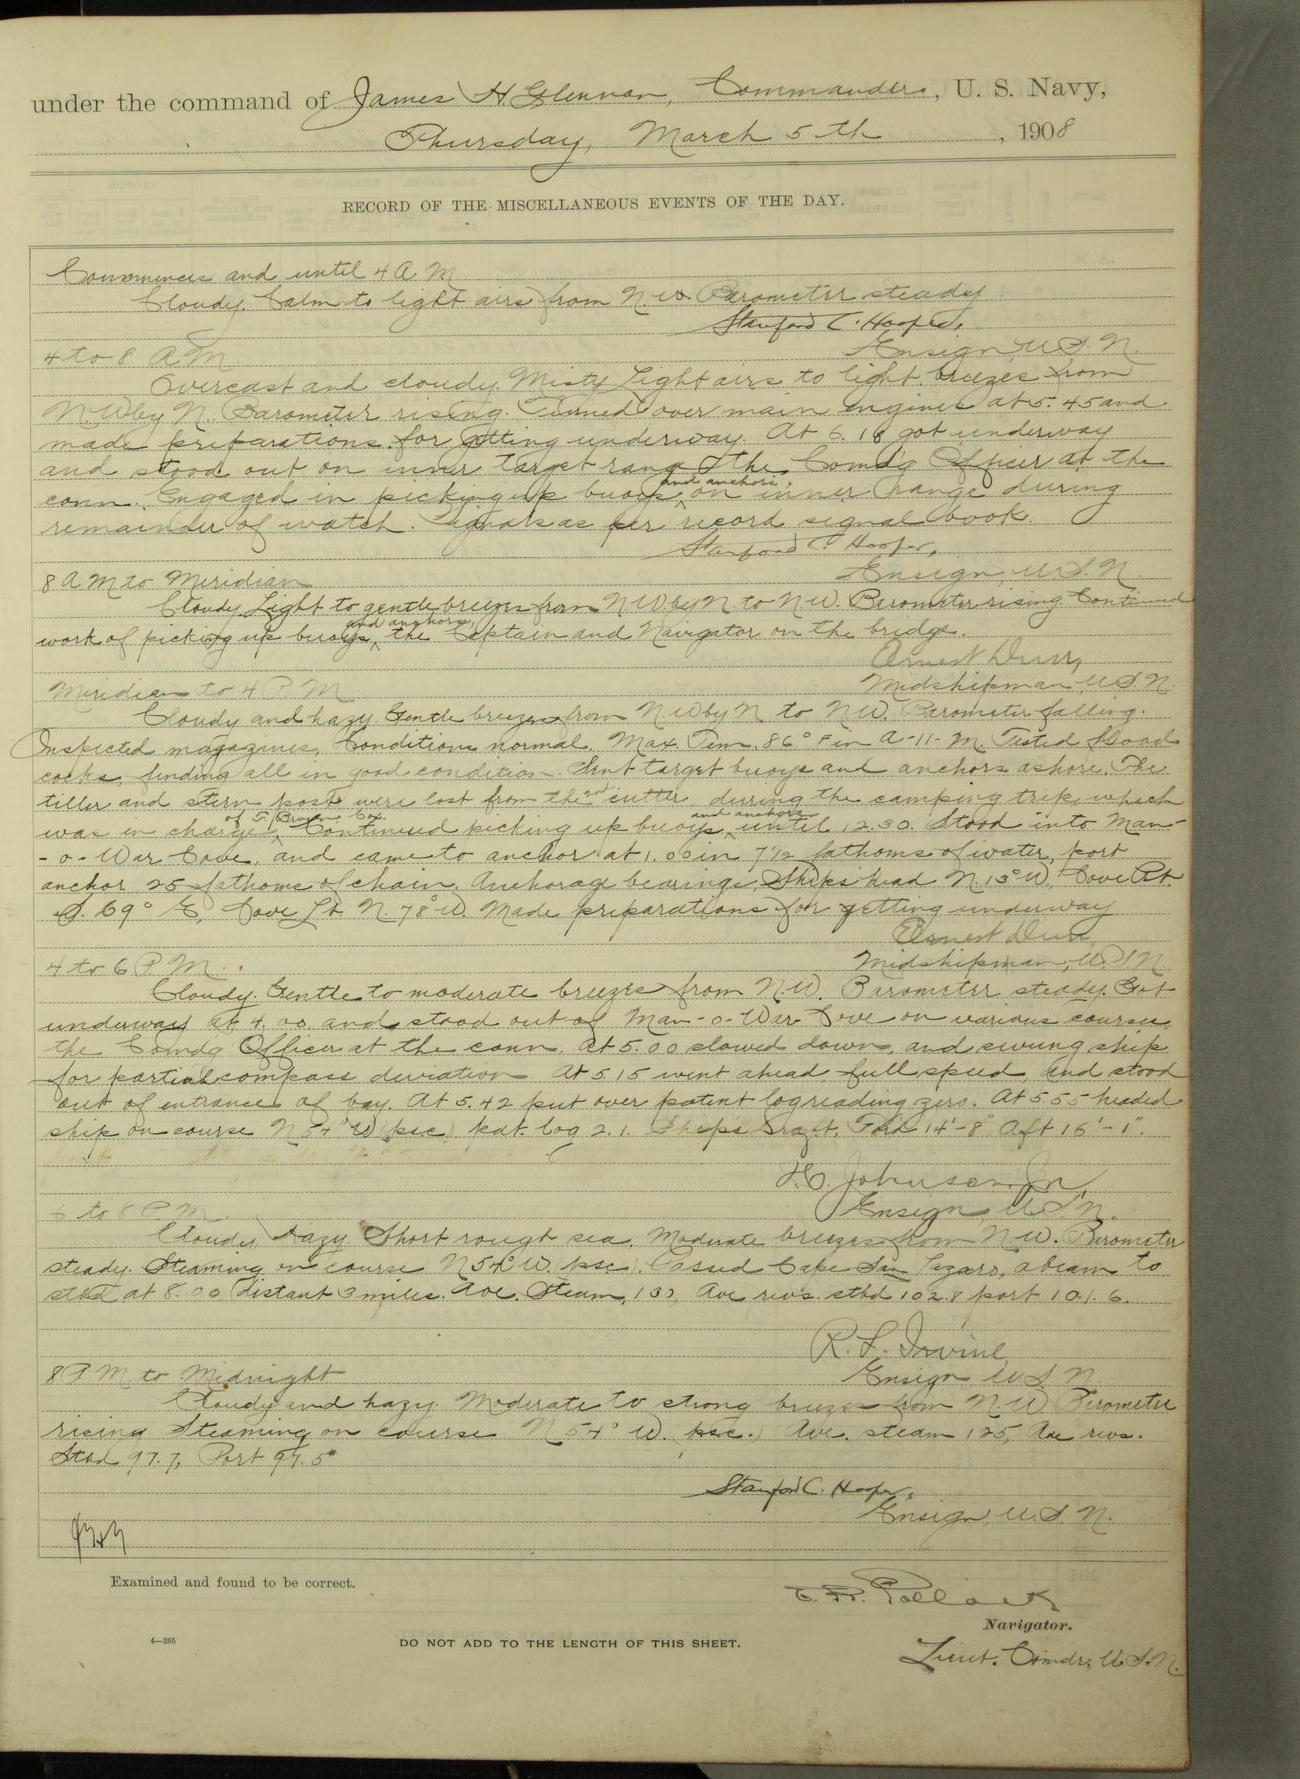 under the command of James H Glennon, Commander, U. S. Navy,
Thursday, March 5th, 1908
RECORD OF THE MISCELLANEOUS EVENTS OF THE DAY.
Commences and until 4 A M
Cloudy. Calm to light airs from N.W. Barometer steady
Stanford C. Hooper,
Ensign, U.S.N.
4 to 8 A M
Overcast and cloudy. Misty. Light airs to light breezes from
N.W by N. Barometer rising. Turned over main engines at 5.45 and
made preparations for getting underway. At 6.18 got underway
and stood out on inner target range the Comd'g Officer at the
conn. Engaged in picking up buoys and anchors, on inner range during
remainder of watch. Signals as per record signal book.
Stanford C. Hooper,
Ensign, U.S.N.
8 A M to Meridian
Cloudy. Light to gentle breezes from N W by N. to N.W. Barometer rising. Continued
work of picking up buoys and anchors, the Captain and Navigator on the bridge.
Ernest Durr,
Midshipman, U.S.N.
Meridian to 4 P M
Cloudy and hazy. Gentle breezes from N.W by N to N.W. Barometer falling.
Inspected magazines, Conditions normal. Max. Tem. 86° F in A-11-M. Tested flood
cocks, finding all in good condition. Sent target buoys and anchors ashore. The
tiller and stern post were lost from the 2nd cutter during the camping trip, which
was in charge of F. Brown, Cox. Continued picking up buoys and anchors until 12.30. Stood into Man-
-o-War Cove, and came to anchor at 1.00 in 7 1/2 fathoms of water, port
anchor 25 fathoms of chain. Anchorage bearings, Ship's head N. 13° W., Cove Pt.
S. 69° E, Cove Lt. N. 78° W. Made preparations for getting underway
Ernest Durr,
Midshipman, U.S.N.
4 to 6 P M.
Cloudy. Gentle to moderate breezes from N.W. Barometer steady. Got
underway at 4.00 and stood out of Man-o-War Cove on various courses,
the Comd'g Officer at the conn. At 5.00 slowed down, and swung ship
for partial compass deviation. At 5.15 went ahead full speed, and stood
out of entrance of bay. At 5.42 put over patent log reading zero. At 5 55 headed
ship on course N 54° W (psc) pat. log 2.1. Ships Draft, For'd 14'-8" Aft 16'-1".
H.C. Johnson, Jr.,
Ensign, U.S.N.
6 to 8 P.M.
Cloudy, hazy. Short rough sea. Moderate breezes from N.W. Barometer
steady. Steaming on course N 54° W. (psc). Passed Cape San Lazaro, abeam to
stbd at 8.00 distant 3 miles. Ave. Steam, 130, Ave revs. stbd 102.8 port 101.6.
R. L. Irvine,
Ensign U S N.
8 P M. to Midnight
Cloudy and hazy. Moderate to strong breezes from N.W. Barometer
rising Steaming on course N 54° W. (psc.) Ave. steam 125, Ave revs.
Stbd 97.7, Port 97.5
Stanford C. Hooper,
Ensign, U.S.N.
JHG
Examined and found to be correct.
E. R. Pollock
Navigator.
Lieut. Comdr. U.S.N.
4—265
DO NOT ADD TO THE LENGTH OF THIS SHEET.